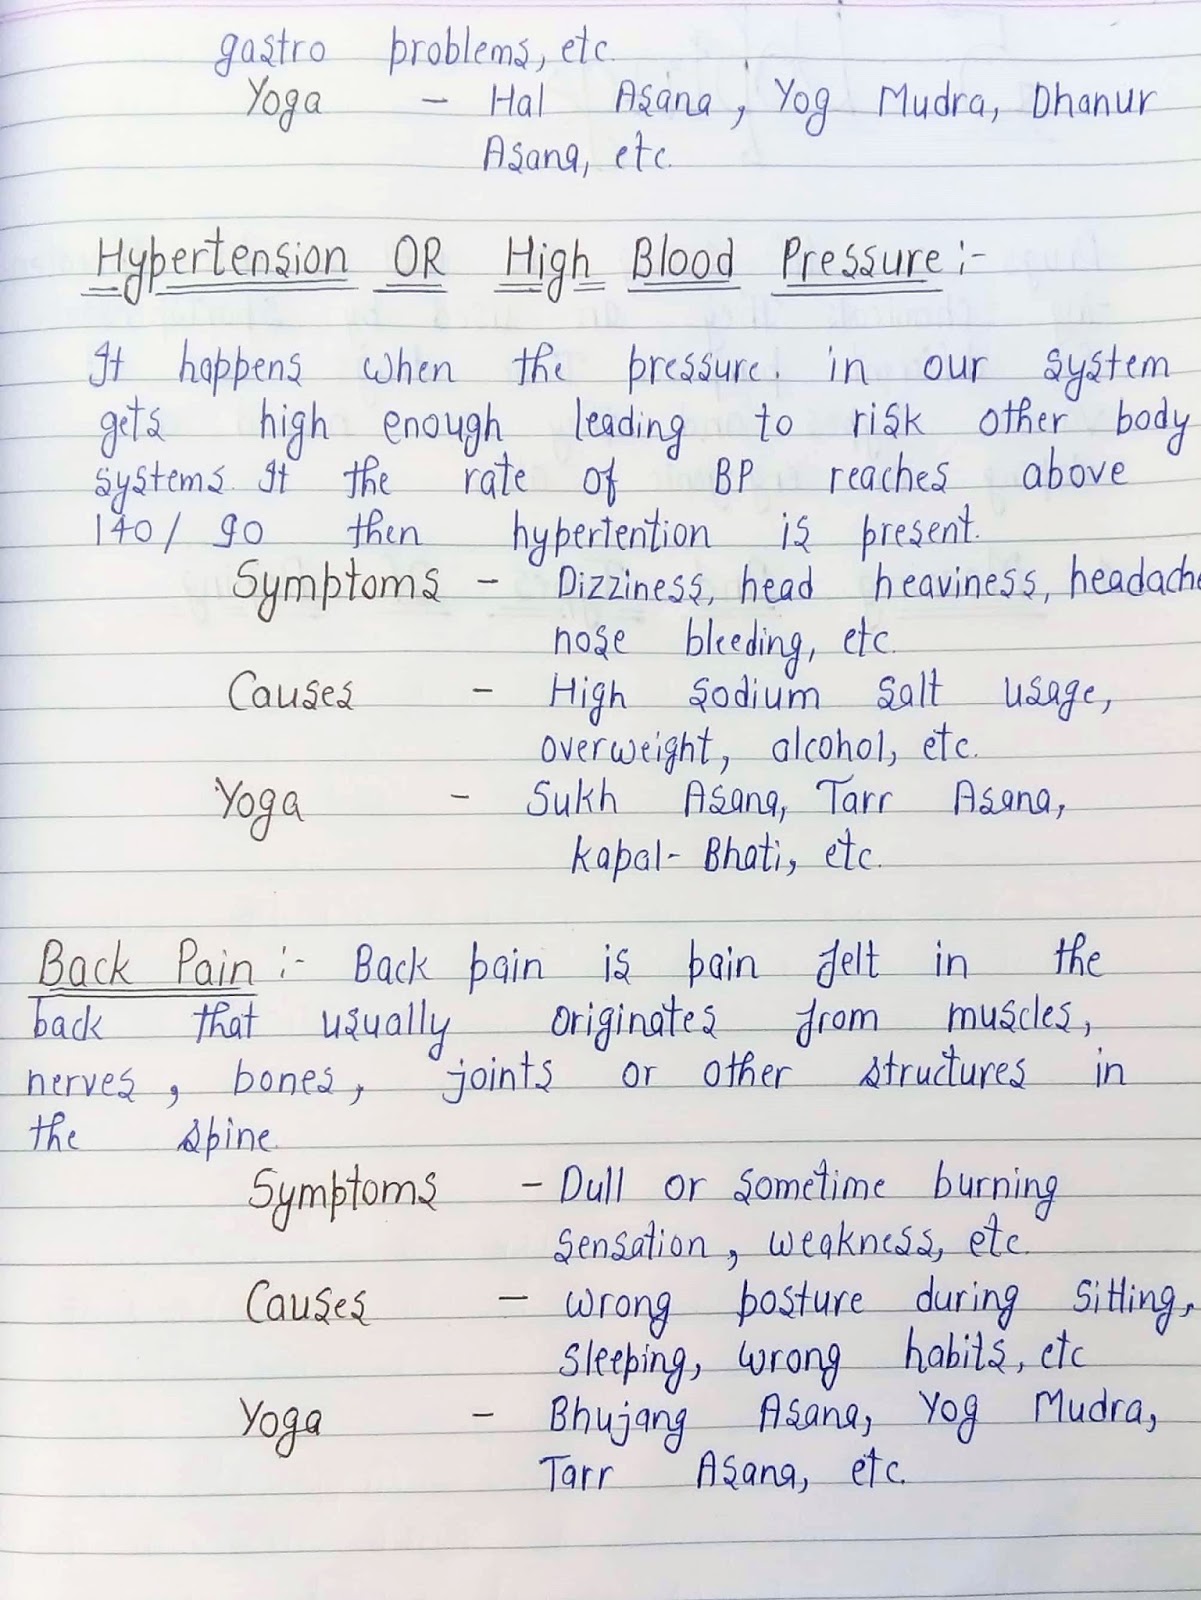 gastro problems, etc.
Yoga - Hal Asana, Yog Mudra, Dhanur
Asana, etc.
Hypertension OR High Blood Pressure :-
It happens when the pressure. in our system
gets high enough leading to risk other body
systems. It the rate of BP reaches above
140/90 then hypertention is present.
Symptoms - Dizziness, head heaviness, headache
nose bleeding, etc.
Causes - High sodium salt usage,
overweight, alcohol, etc.
Yoga - Sukh Asana, Tarr Asana,
Kapal-Bhati, etc.
Back Pain :- Back pain is pain felt in the
back that usually originates from muscles,
nerves, bones, joints or other structures in
the spine.
Symptoms - Dull or sometime burning
sensation, weakness, etc.
Causes - Wrong posture during sitting,
sleeping, wrong habits, etc
Yoga - Bhujang Asana, Yog Mudra,
Tarr Asana, etc.